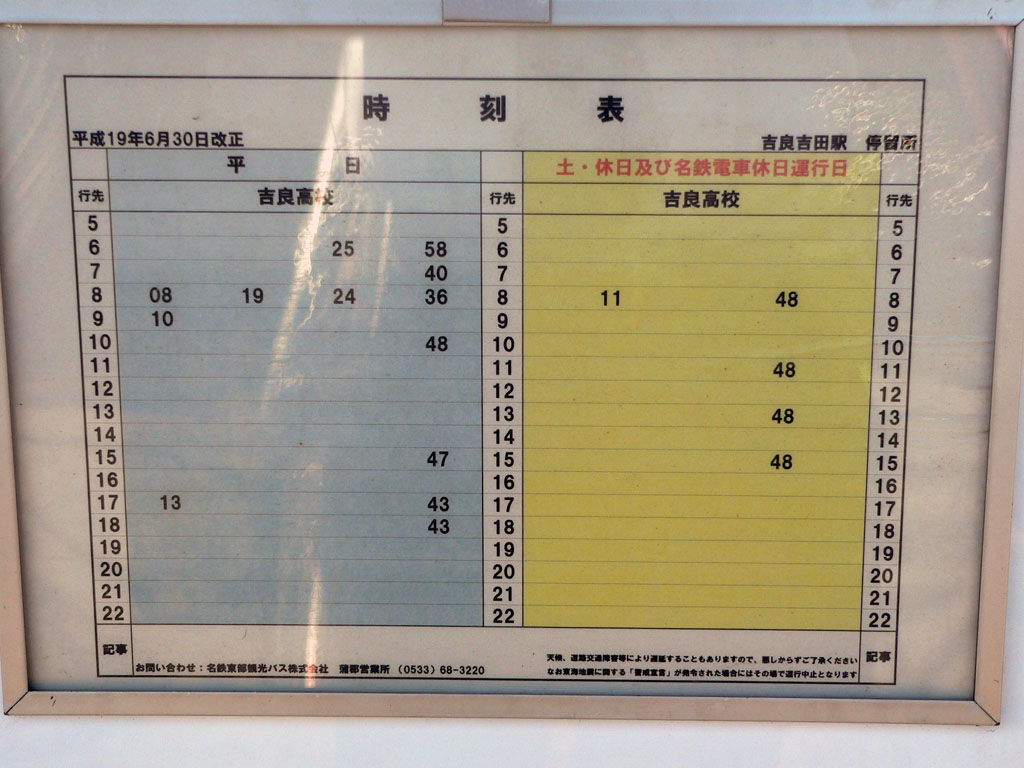 時刻表
平成19年6月30日改正 吉良吉田駅 停留所
平日 土・休日及び名鉄電車休日運行日
行先 吉良高校 行先 吉良高校 行先
5 5 5
6 25 58 6 6
7 40 7 7
8 08 19 24 36 8 11 48 8
9 10 9 9
10 48 10 10
11 11 48 11
12 12 12
13 13 48 13
14 14 14
15 47 15 48 15
16 16 16
17 13 43 17 17
18 43 18 18
19 19 19
20 20 20
21 21 21
22 22 22
記事 お問い合わせ：名鉄東部観光バス株式会社 蒲郡営業所 (0533) 68-3220 記事
天候、道路交通障害等により遅延することもありますので、悪しからずご了承ください
なお東海地震に関する「警戒宣言」が発令された場合にはその場で運行中止となります